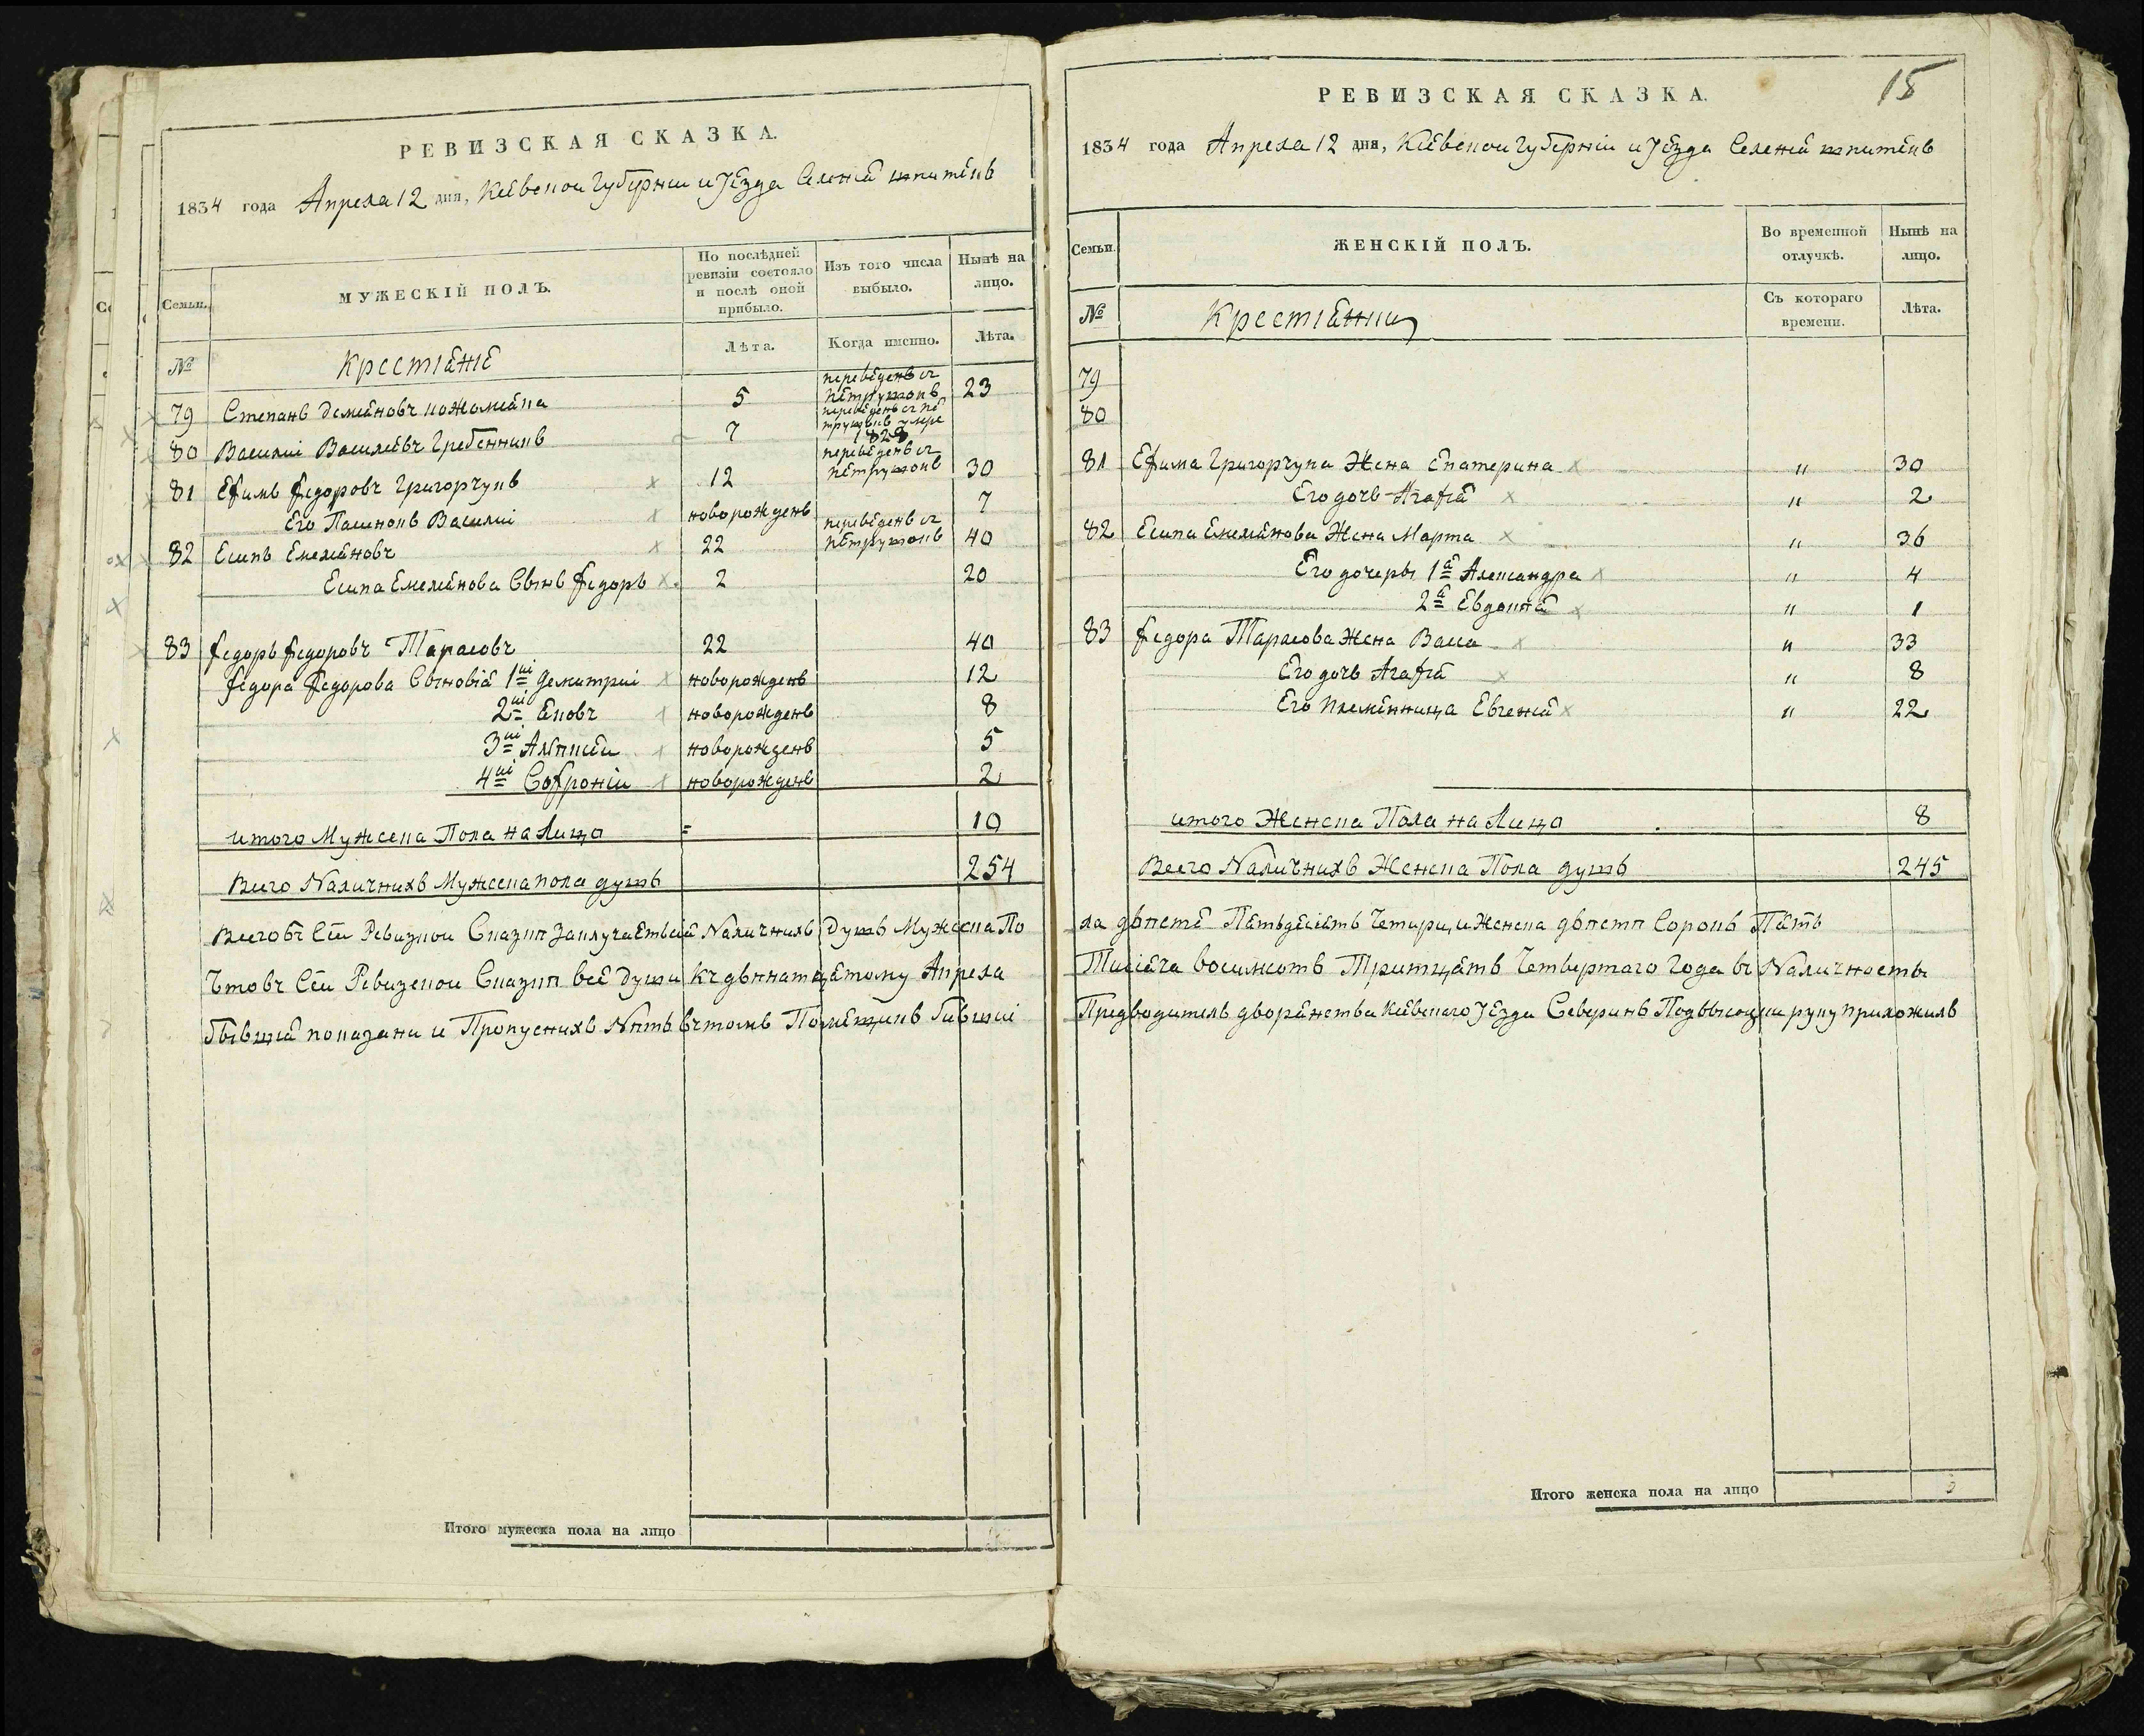 РЕВИЗСКАЯ СКАЗКА.
1834 года Апреля 12 дня, Кіевской Губерніи и Уезда Селенія шпитекъ
Семьи.
МУЖЕСКІЙ ПОЛЪ.
По послѣдней ревизіи состояло и послѣ оной прибыло.
Изъ того числа выбыло.
Нынѣ на лицо.
№
Крестіяне
Лѣта.
Когда именно.
Лѣта.
79 Степанъ Демяновъ 5 переведенъ съ Петрушокъ 23
80 Василиі Василіевъ Гребенникъ 7 переведенъ съ Петрушокъ умре 1828
81 Ефимъ Федоровъ Григорчукъ 12 переведенъ съ Петрушокъ 30
Его Пасинокъ Василиі новорожденъ 7
82 Есипъ Емеляновъ 22 переведенъ съ Петрушокъ 40
Есипа Емелянова Сынъ Федоръ 2 20
83 Федоръ Федоровъ Тарасовъ 22 40
Федора Федорова Сыновія 1іи Демитриі новорожденъ 12
2іи Яковъ новорожденъ 8
3іи новорожденъ 5
4іи Софроніи новорожденъ 2
итого Мужеска Пола на Лицо = 10
Всего Наличнихъ Мужеска пола душъ 254
Всего въ Сеи Ревизкои Сказки Заключается Наличнихъ Душъ Мужеска По
Что въ Сеи Ревизской Сказки все души къ двенатцятому Апреля
бывшія показани и Пропускнихъ Нѣтъ вътомъ
РЕВИЗСКАЯ СКАЗКА.
15
1834 года Апреля 12 дня, Кіевской Губерніи и Уезда Селенія шпитекъ
Семьи.
ЖЕНСКІЙ ПОЛЪ.
Во временной отлучкѣ.
Нынѣ на лицо.
№
Крестіянки
Съ котораго времени.
Лѣта.
79
80
81 Ефима Григорчука Жена Екатерина " 30
Его дочь Агафія " 2
82 Есипа Емелянова Жена Марта " 36
Его дочеры 1я Александра " 4
2я Евдокия " 1
83 Федора Тарасова Жена Васса " 33
Его дочь Агафія " 8
Его племянница Евгенія " 22
итого Женска Пола на Лицо 8
Всего Наличнихъ Женска Пола душъ 245
ла двѣстѣ Пятьдесятъ Четыри, и Женска двѣсти Сорокъ Пять
Тисяча восимсотъ Тритцять Четвертаго Года въ Наличносты
Предводитель дворянства Кіевского Уезда Северинъ Подвысоцки руку приложилъ
Итого мужеска пола на лицо
Итого женска пола на лицо